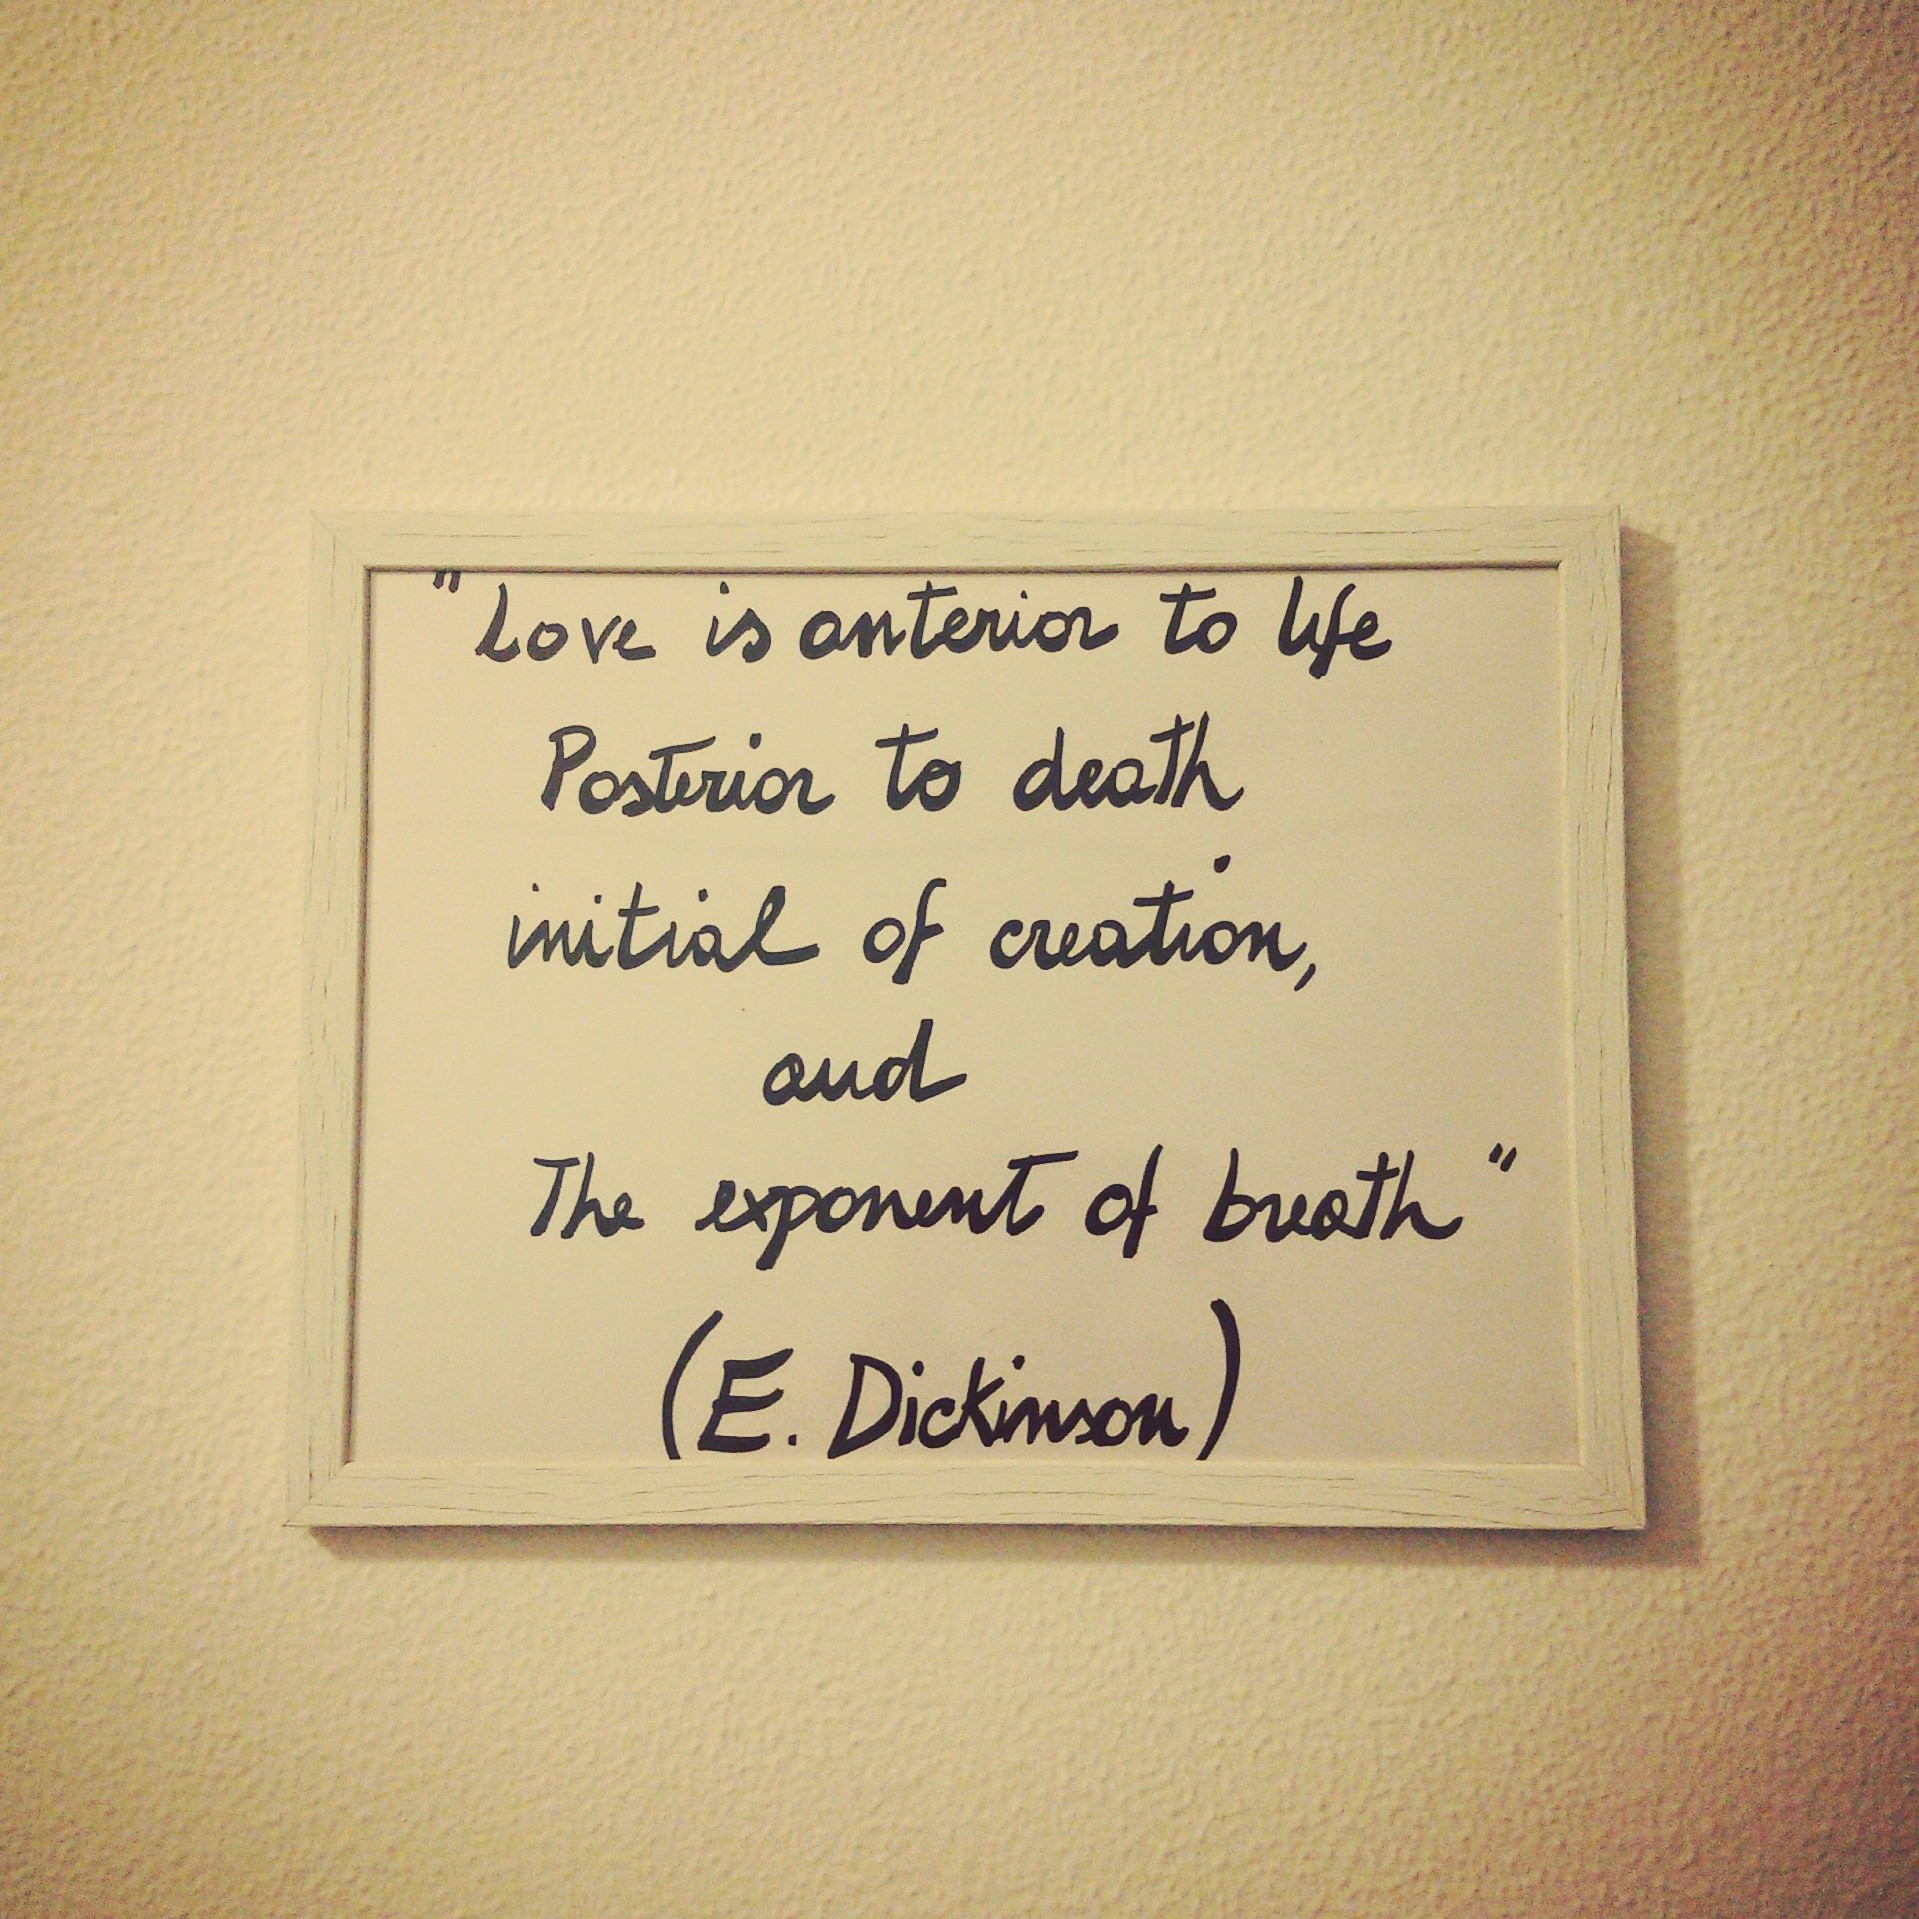 "Love is anterior to life
Posterior to death
initial of creation,
and
The exponent of breath"
(E. Dickinson)